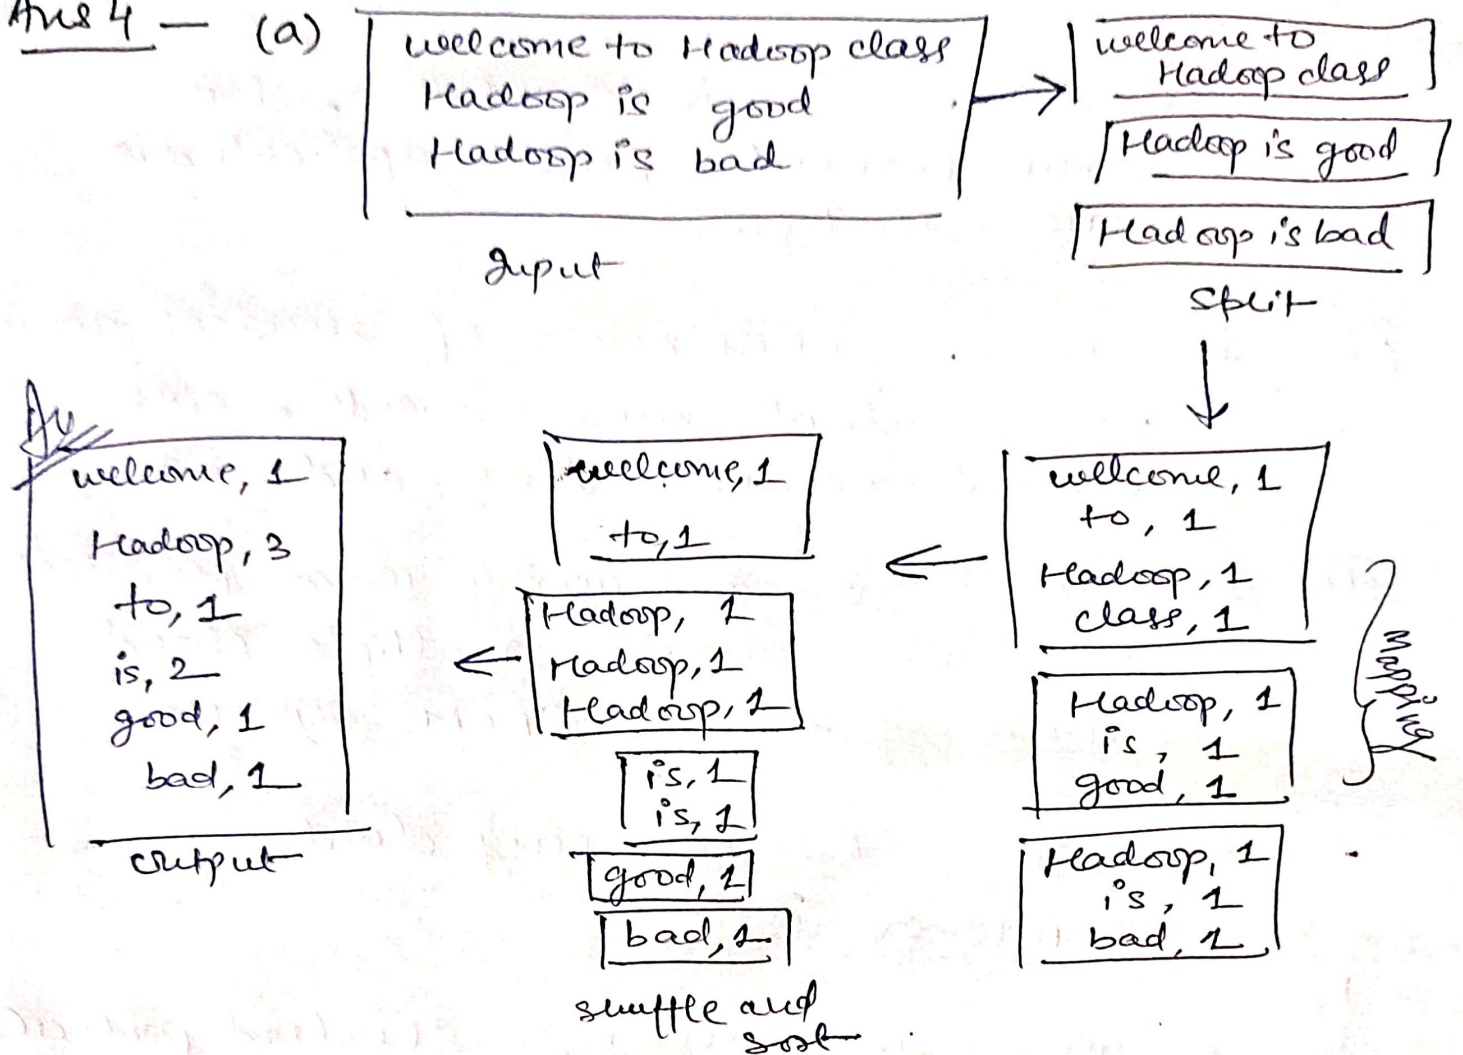 Ans 4 - (a)
welcome to Hadoop class
Hadoop is good
Hadoop is bad
Input
welcome to
Hadoop class
Hadoop is good
Hadoop is bad
Split
welcome, 1
to, 1
Hadoop, 1
class, 1
Hadoop, 1
is, 1
good, 1
Hadoop, 1
is, 1
bad, 1
Mapping
welcome, 1
to, 1
Hadoop, 1
Hadoop, 1
Hadoop, 1
is, 1
is, 1
good, 1
bad, 1
shuffle and
sort
welcome, 1
Hadoop, 3
to, 1
is, 2
good, 1
bad, 1
output